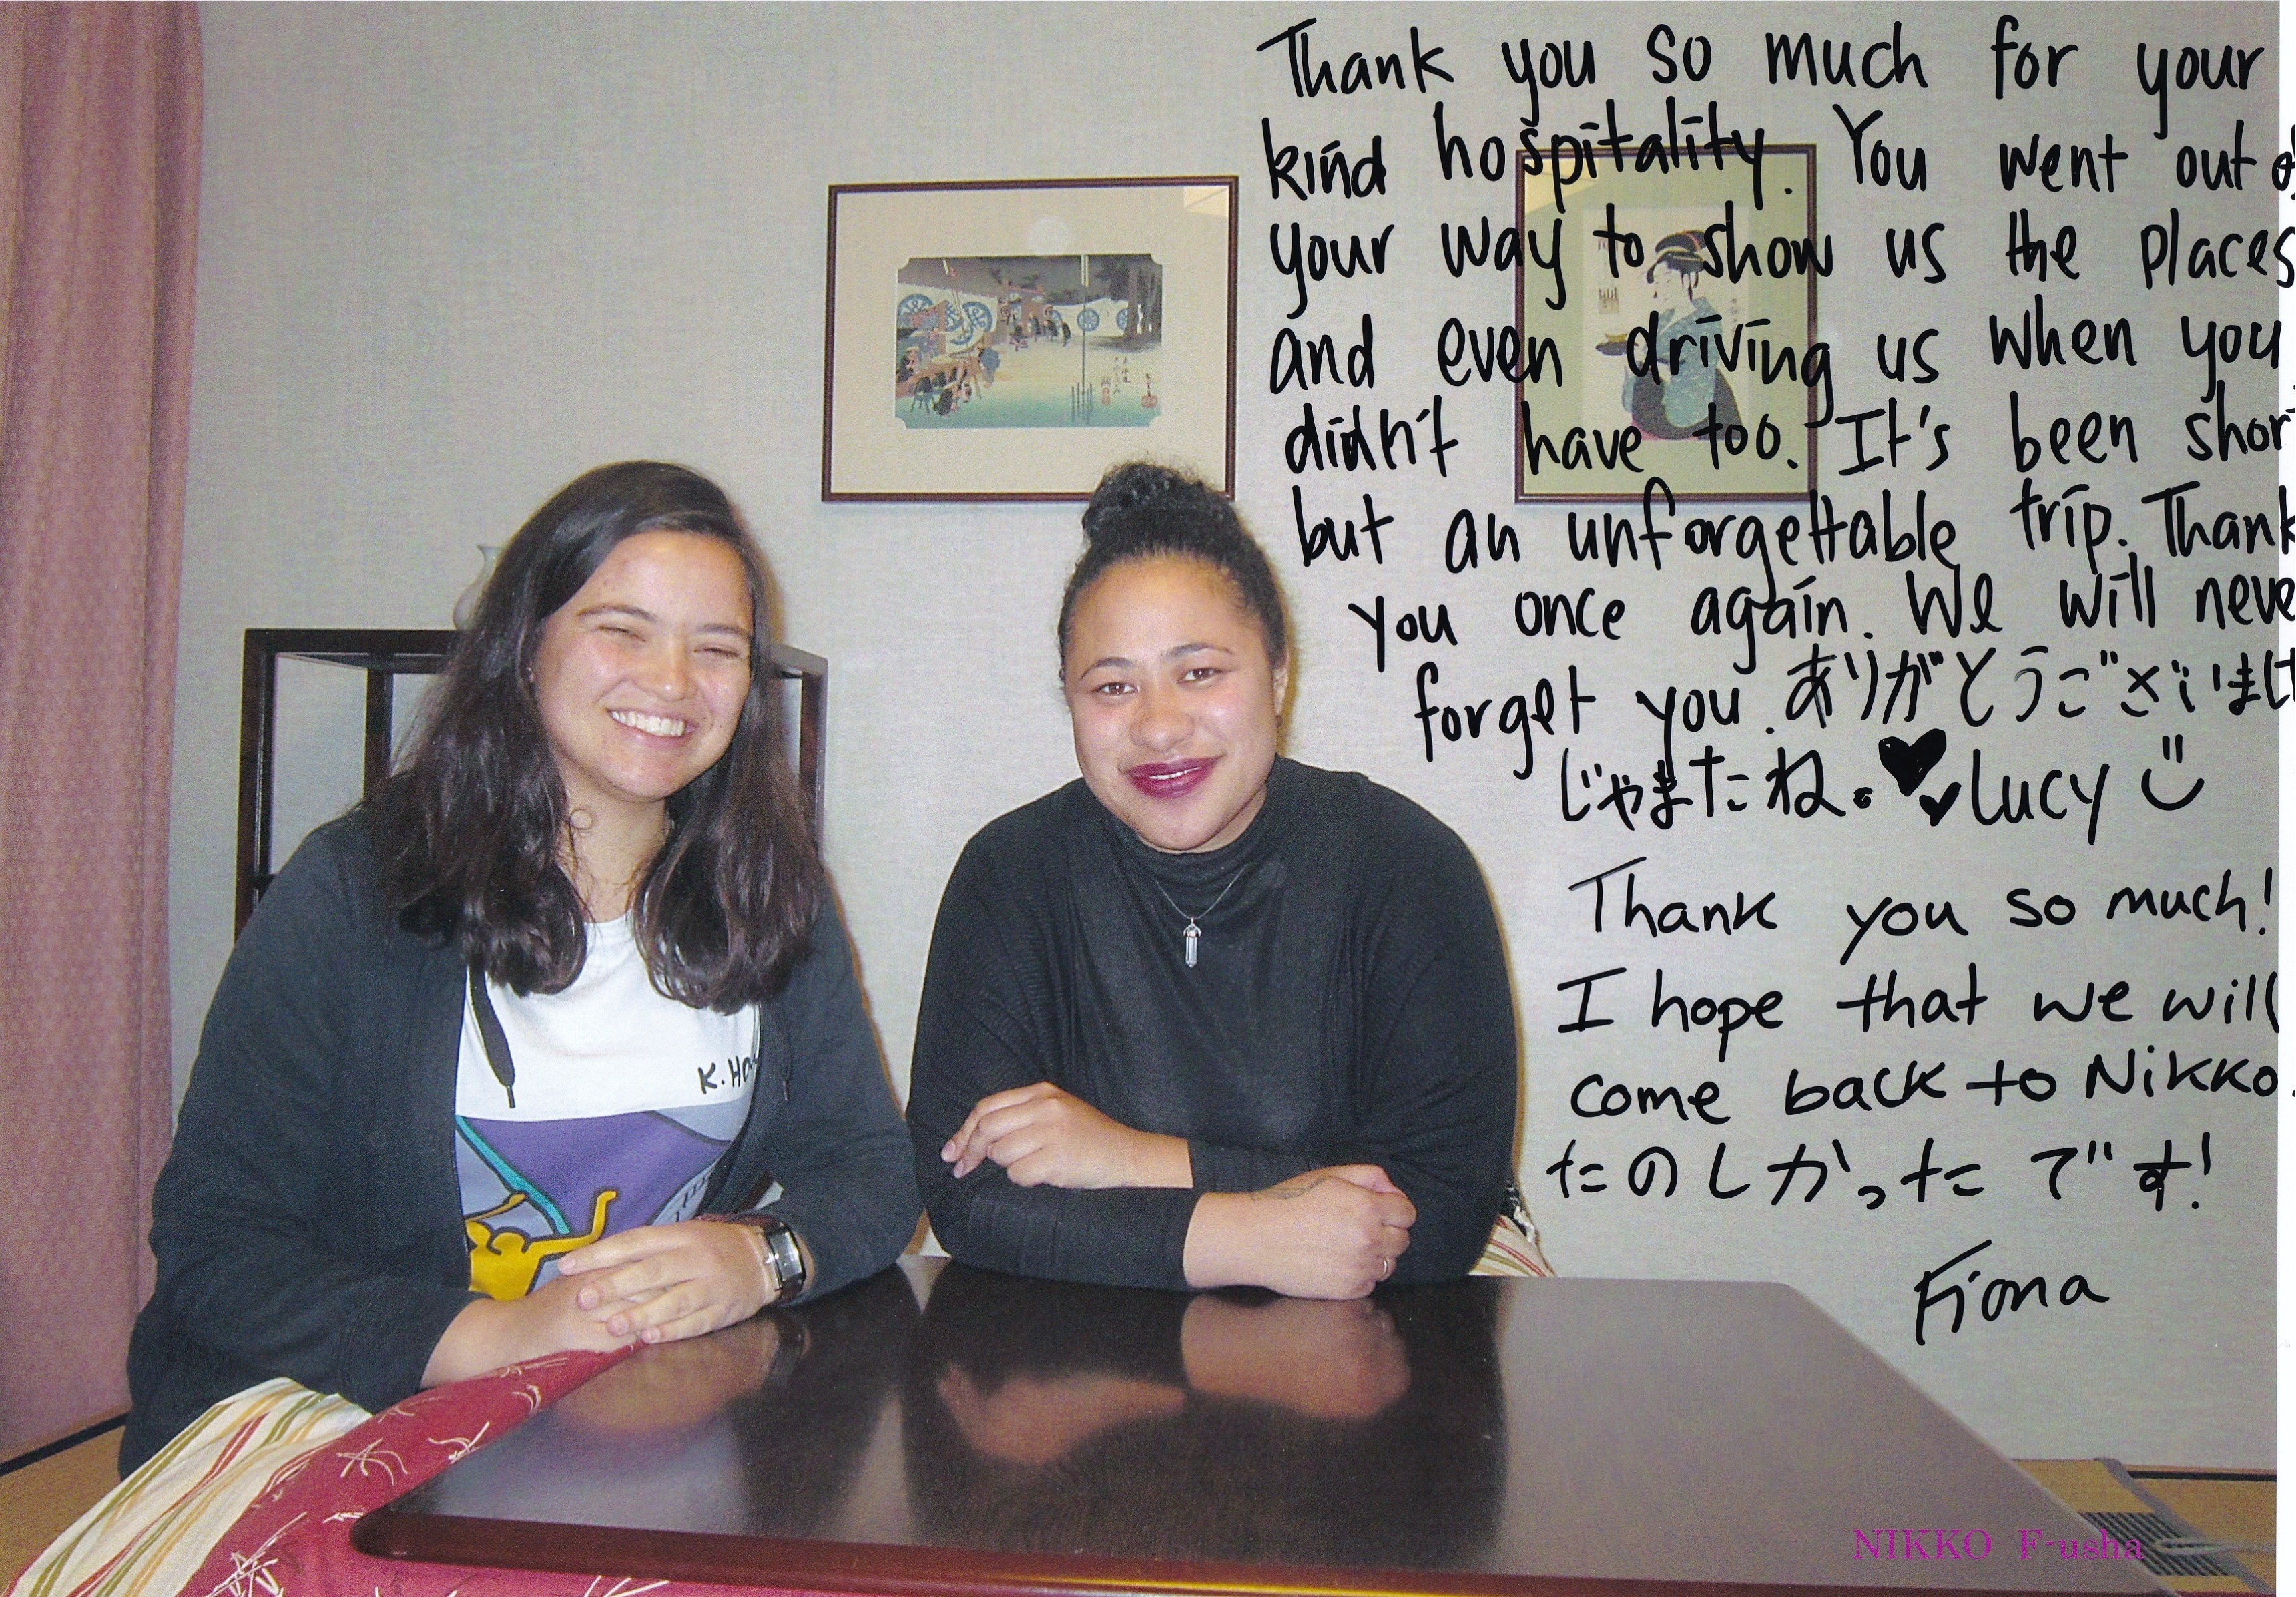 Thank you so much for your
kind hospitality. You went out of
your way to show us the places
and even driving us when you
didn't have too. It's been short
but an unforgettable trip. Thank
you once again. We will neve
forget you. ありがとうございまし
じゃまたね。 Lucy
Thank you so much!
I hope that we will
come back to Nikko.
たのしかったです!
Fiona
K. Ha
NIKKO F-usha